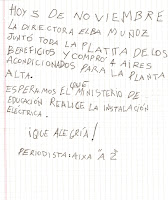 HOY 5 DE NOVIEMBRE
LA DIRECTORA ELBA MUÑOZ
JUNTÓ TODA LA PLATITA DE LOS
BENEFICIOS Y COMPRÓ 4 AIRES
ACONDICIONADOS PARA LA PLANTA
ALTA.
QUE
ESPERAMOS EL MINISTERIO DE
EDUCACIÓN REALICE LA INSTALACIÓN
ELÉCTRICA.
¡QUE ALEGRÍA!
PERIODISTA: AIXA "A Z"